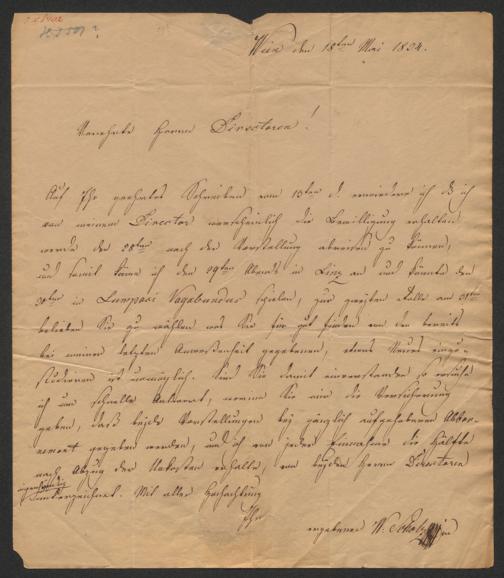 Wien den 18ten Mai 1834.
Verehrte Herrn Directoren!
Auf Ihr geehrtes Schreiben vom 13ten d. erwiedere ich daß ich
von meinem Director wahrscheinlich die Bewilligung erhalten
werde den 28ten nach der Vorstellung abreisen zu können,
und somit käme ich den 29ten Abends in Linz an und könnte den
30ten in Lumpaci Vagabundus spielen, zur zweiten Rolle am 31ten
belieben Sie zu wählen was Sie für gut finden von den bereits
bei meiner letzten Anwesenheit gegebenen, etwas Neues einzu-
studieren ist unmöglich. Sind Sie damit einverstanden so ersuche
ich um schnelle Antwort, wenn Sie mir die Versicherung
geben, daß beide Vorstellungen bei gänzlich aufgehobenen Abbon-
ement gegeben werden, und ich von jeder Einnahme die Hälfte
nach Abzug der Unkosten erhalte, von beyden Herrn Directoren
eigenhändig
unterzeichnet. Mit aller Hochachtung
Ihr
ergebener W. Scholz